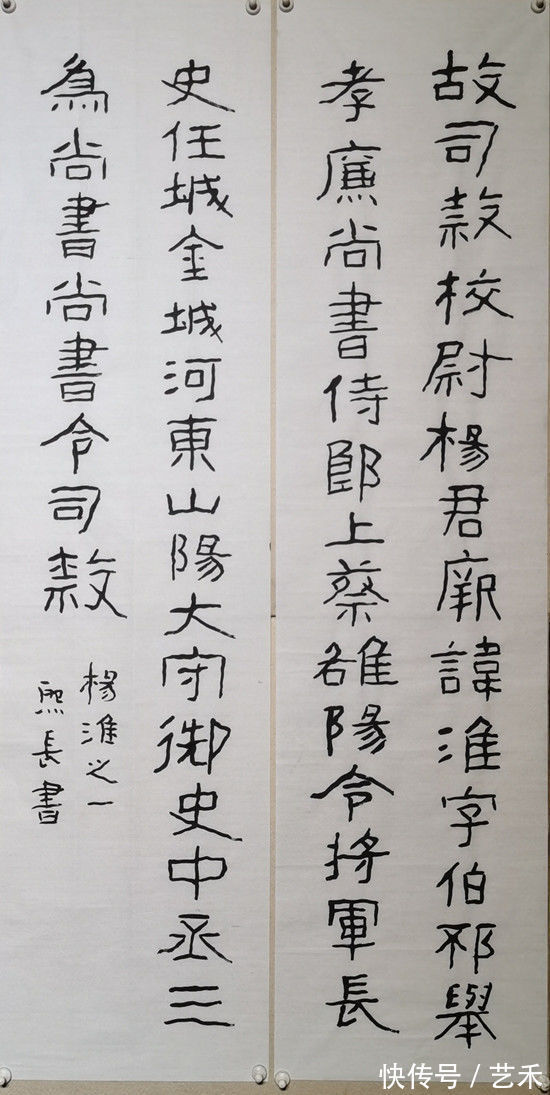 故司隸校尉楊君厥諱淮字伯邳舉
孝廉尚書侍郎上蔡雒陽令將軍長
史任城金城河東山陽大守御史中丞三
為尚書尚書令司隸
楊淮之一
熙長書
快传号/艺禾